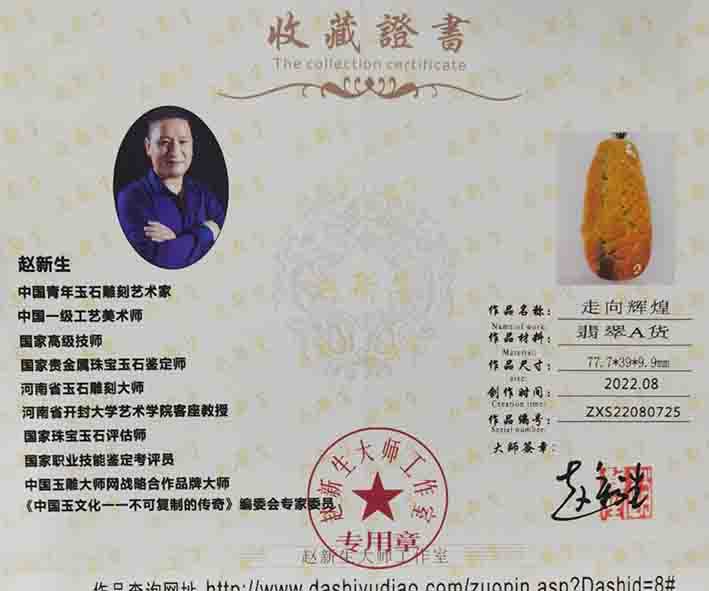 收藏證書
The collection certificate
赵新生
中国青年玉石雕刻艺术家
中国一级工艺美术师
国家高级技师
国家贵金属珠宝玉石鉴定师
河南省玉石雕刻大师
河南省开封大学艺术学院客座教授
国家珠宝玉石评估师
国家职业技能鉴定考评员
中国玉雕大师网战略合作品牌大师
《中国玉文化一一不可复制的传奇》编委会专家委员
作品名称： 走向辉煌
Name of work:
作品材料： 翡翠A货
Material:
作品尺寸： 77.7*39*9.9mm
size:
创作时间： 2022.08
Creation time:
作品编号： ZXS22080725
Serial number:
大师签章：
赵新生
赵新生大师工作室
专用章
赵新生大师工作室
作品查询网址 http://www.dashiyudiao.com/zuopin.asp?Dashid=8#